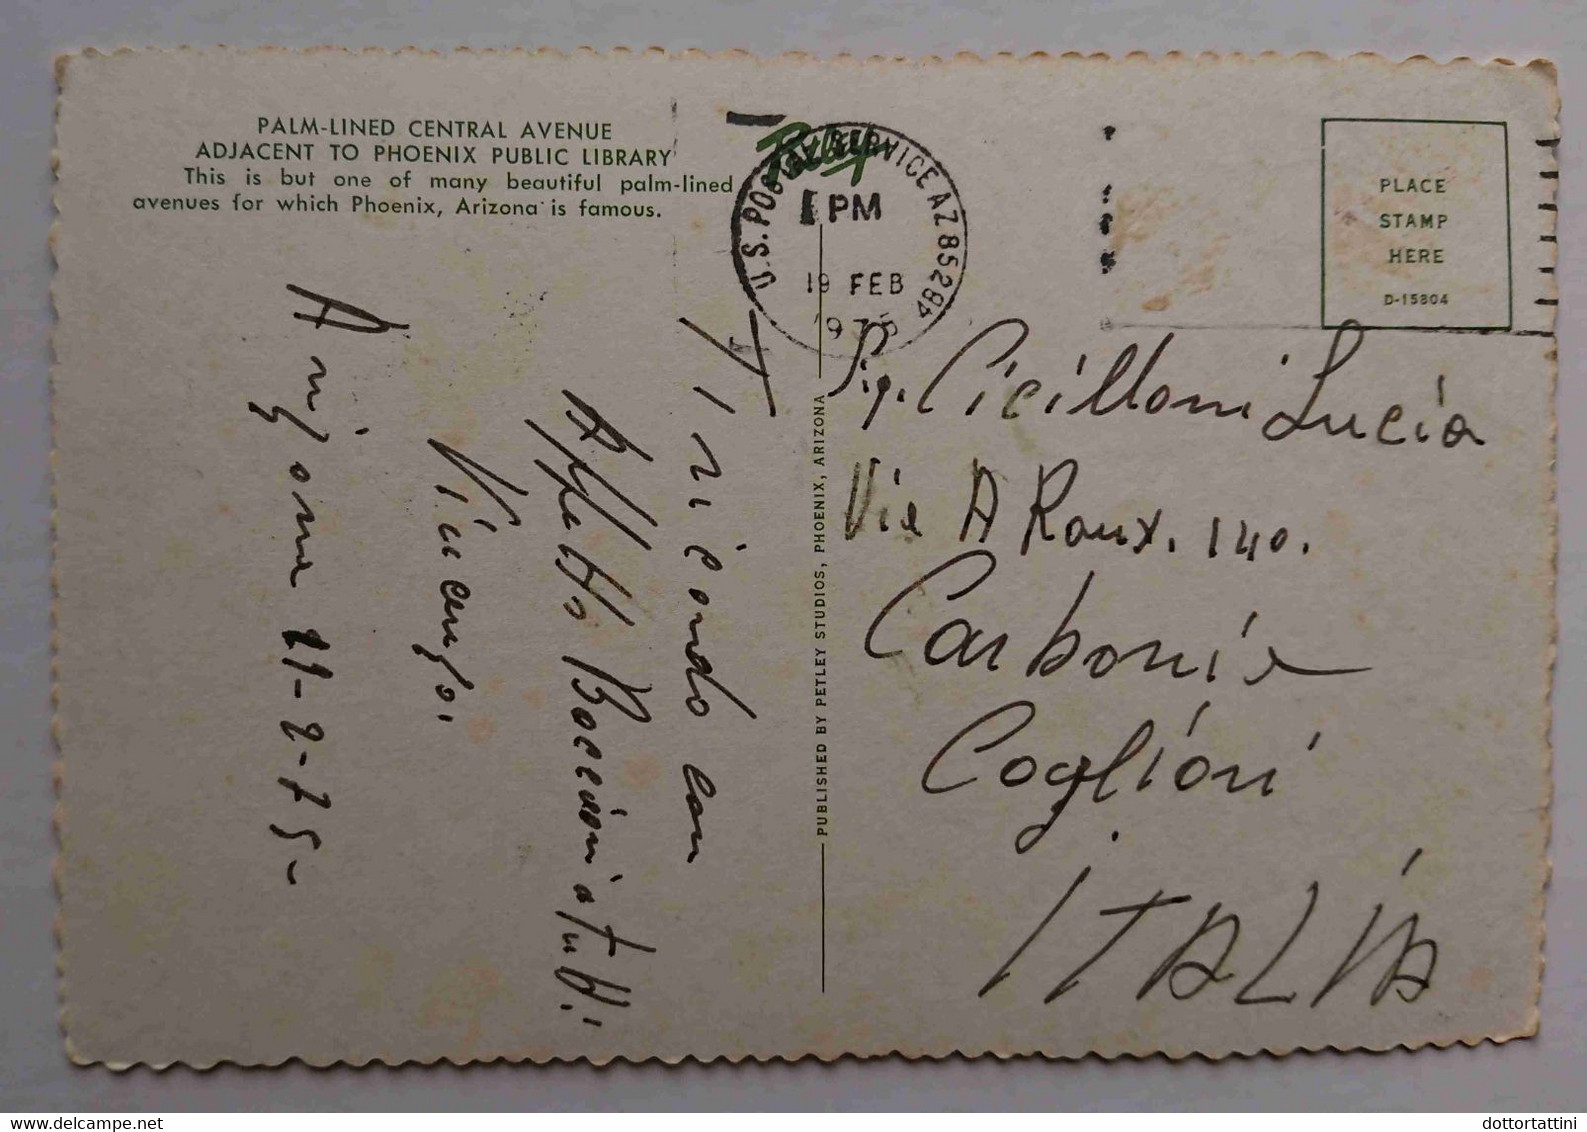 PALM-LINED CENTRAL AVENUE
ADJACENT TO PHOENIX PUBLIC LIBRARY
This is but one of many beautiful palm-lined
avenues for which Phoenix, Arizona is famous.
Petley
U.S. POSTAL SERVICE AZ 85284
PM
19 FEB
1975
PLACE
STAMP
HERE
D-15804
Ti ricordo con
Affetto Bacioni a tutti
Vincenzo.
Arizona 11-2-75-
PUBLISHED BY PETLEY STUDIOS, PHOENIX, ARIZONA
Sig. Cicilloni Lucia
Via A Roux. 140.
Carbonia
Cagliari
ITALIA
dottortattini